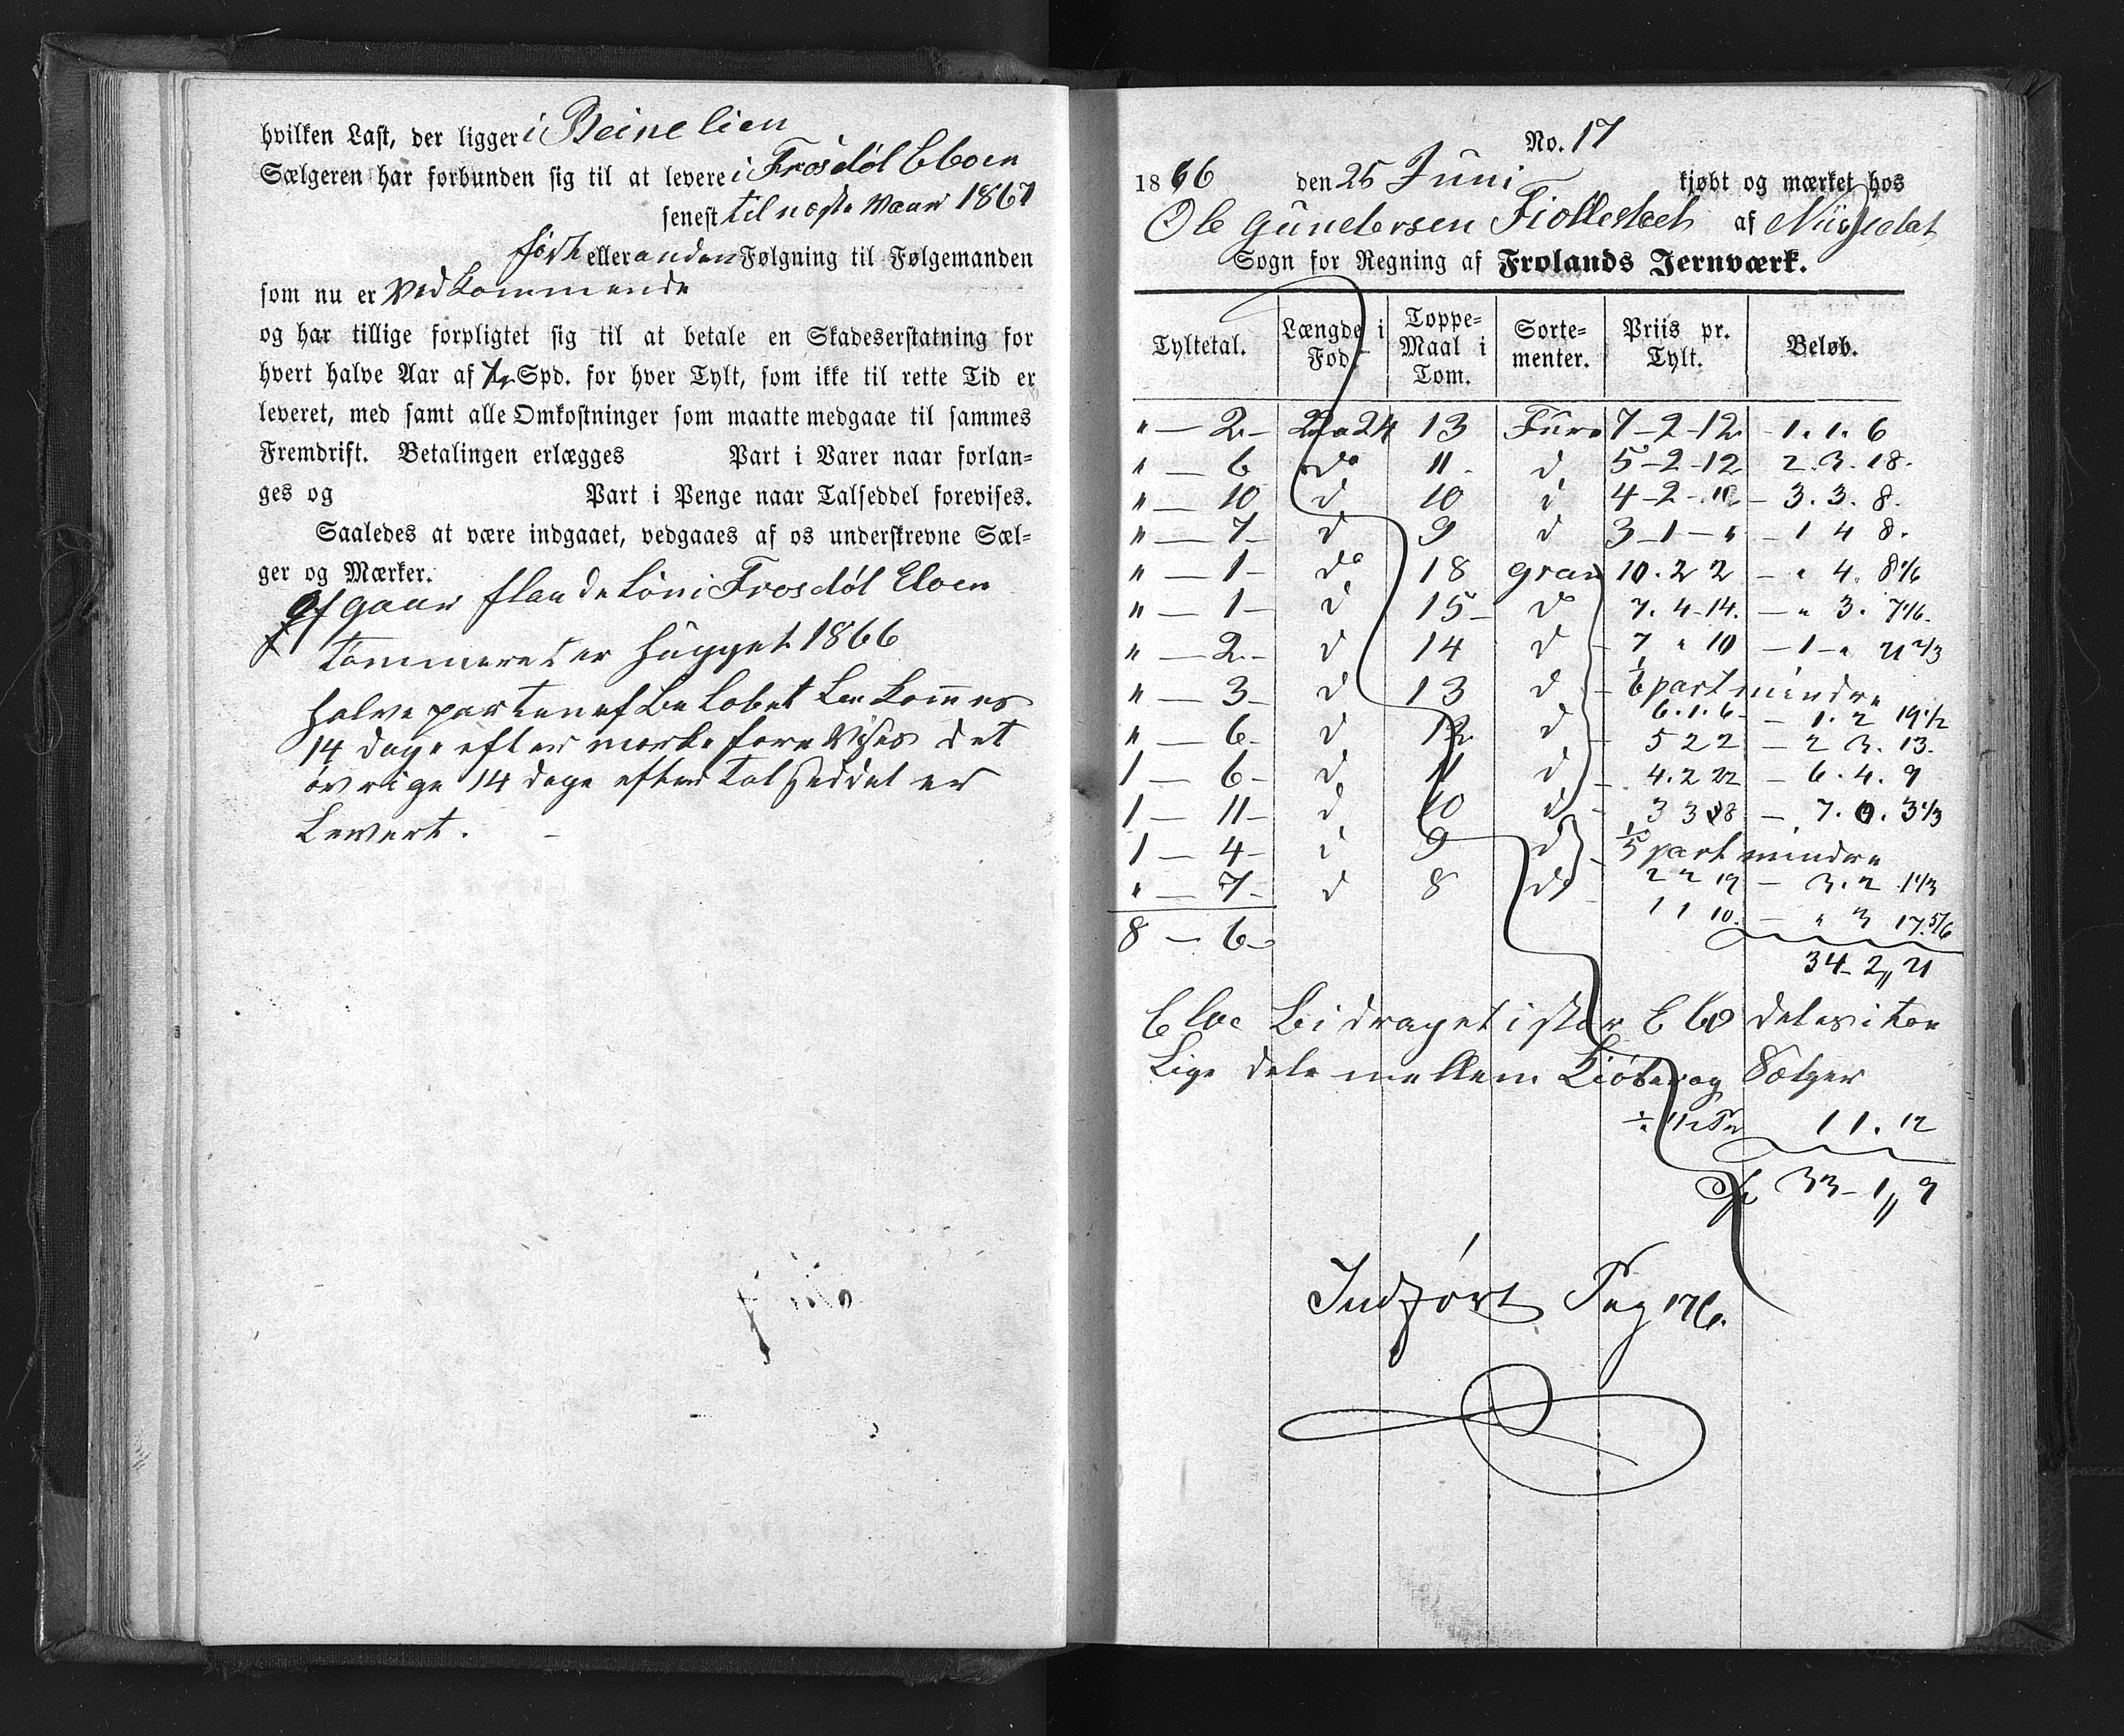 hvilken Last, der ligger i Beine lien
Sælgeren har forbunden sig til at levere i Frosdøl Elven
senest til næste Vaar 1867
førte eller anden Følgning til Følgemanden
som nu er Vedkommende
og har tillige forpligtet sig til at betale en Skadeserstatning for
hvert halve Aar af Spd. for hver Tylt, som ikke til rette Tid er
leveret, med samt alle Omkostninger som maatte medgaae til sammes
Fremdrift. Betalingen erlægges Part i Varer naar forlan-
ges og Part i Penge naar Talseddel forevises.
Saaledes at være indgaaet, vedgaaes af os underskrevne Sæl-
ger og Mærker.
afgaar Frosdøl Elven
Tømmeret er hugget 1866
halve parten af Beløbet kan kommes
14 dage efter mærke forevises det
øvrige 14 dage efter talseddel er
Levert.
No. 17
1866 den 25 Juni kjøbt og mærket hos
Ole Gundersen af Nissedal
Sogn for Regning af Frolands Jernværk.
Tyltetal. Længde i Fod. Toppe-Maal i Tom. Sorte-menter. Priis pr. Tylt. Beløb.
" — 2 - 22 a 24 13 Furu 7-2-12 - 1. 1. 6
" — 6 do 11 d 5-2-12 2. 3. 18.
" — 10 d 10 d 4-2- - 3. 3. 8.
" — 7 - d 9 d 3-1-" - 1 4 8.
" — 1 - do 18 gran 10. 2 2 - " 4. 8 1/6
" — 1 - d 15 - do 7. 4-14. - " 3. 7 1/6.
" — 2 - d 14 d 7 " 10 - 1 - " 21 2/3
" — 3 - d 13 d - 1/6 part mindre
6. 1. 6 - 1. 2 19 1/2
" — 6 - d 12 d - 5 2 2 - 2 3. 13.
1 — 6 - d 11 d - 4. 2 22 - 6. 4. 9
1 — 11 - d 10 d - 3 3 18 - 7. 0. 3 1/3
1 — 4 - d 9 d - 1/5 part mindre
" — 7 - d 8 do 2 2 19 - 3. 2 1 1/3
1 1 10. - " 3 17 5/6
8 — 6 -
34 - 2 " 21
Elve Bidraget i stor Elv deles i toe
Lige dele mellem Kiøber og Sælger
1 1. 12
33 - 1 " 9
Indført Pag 176.